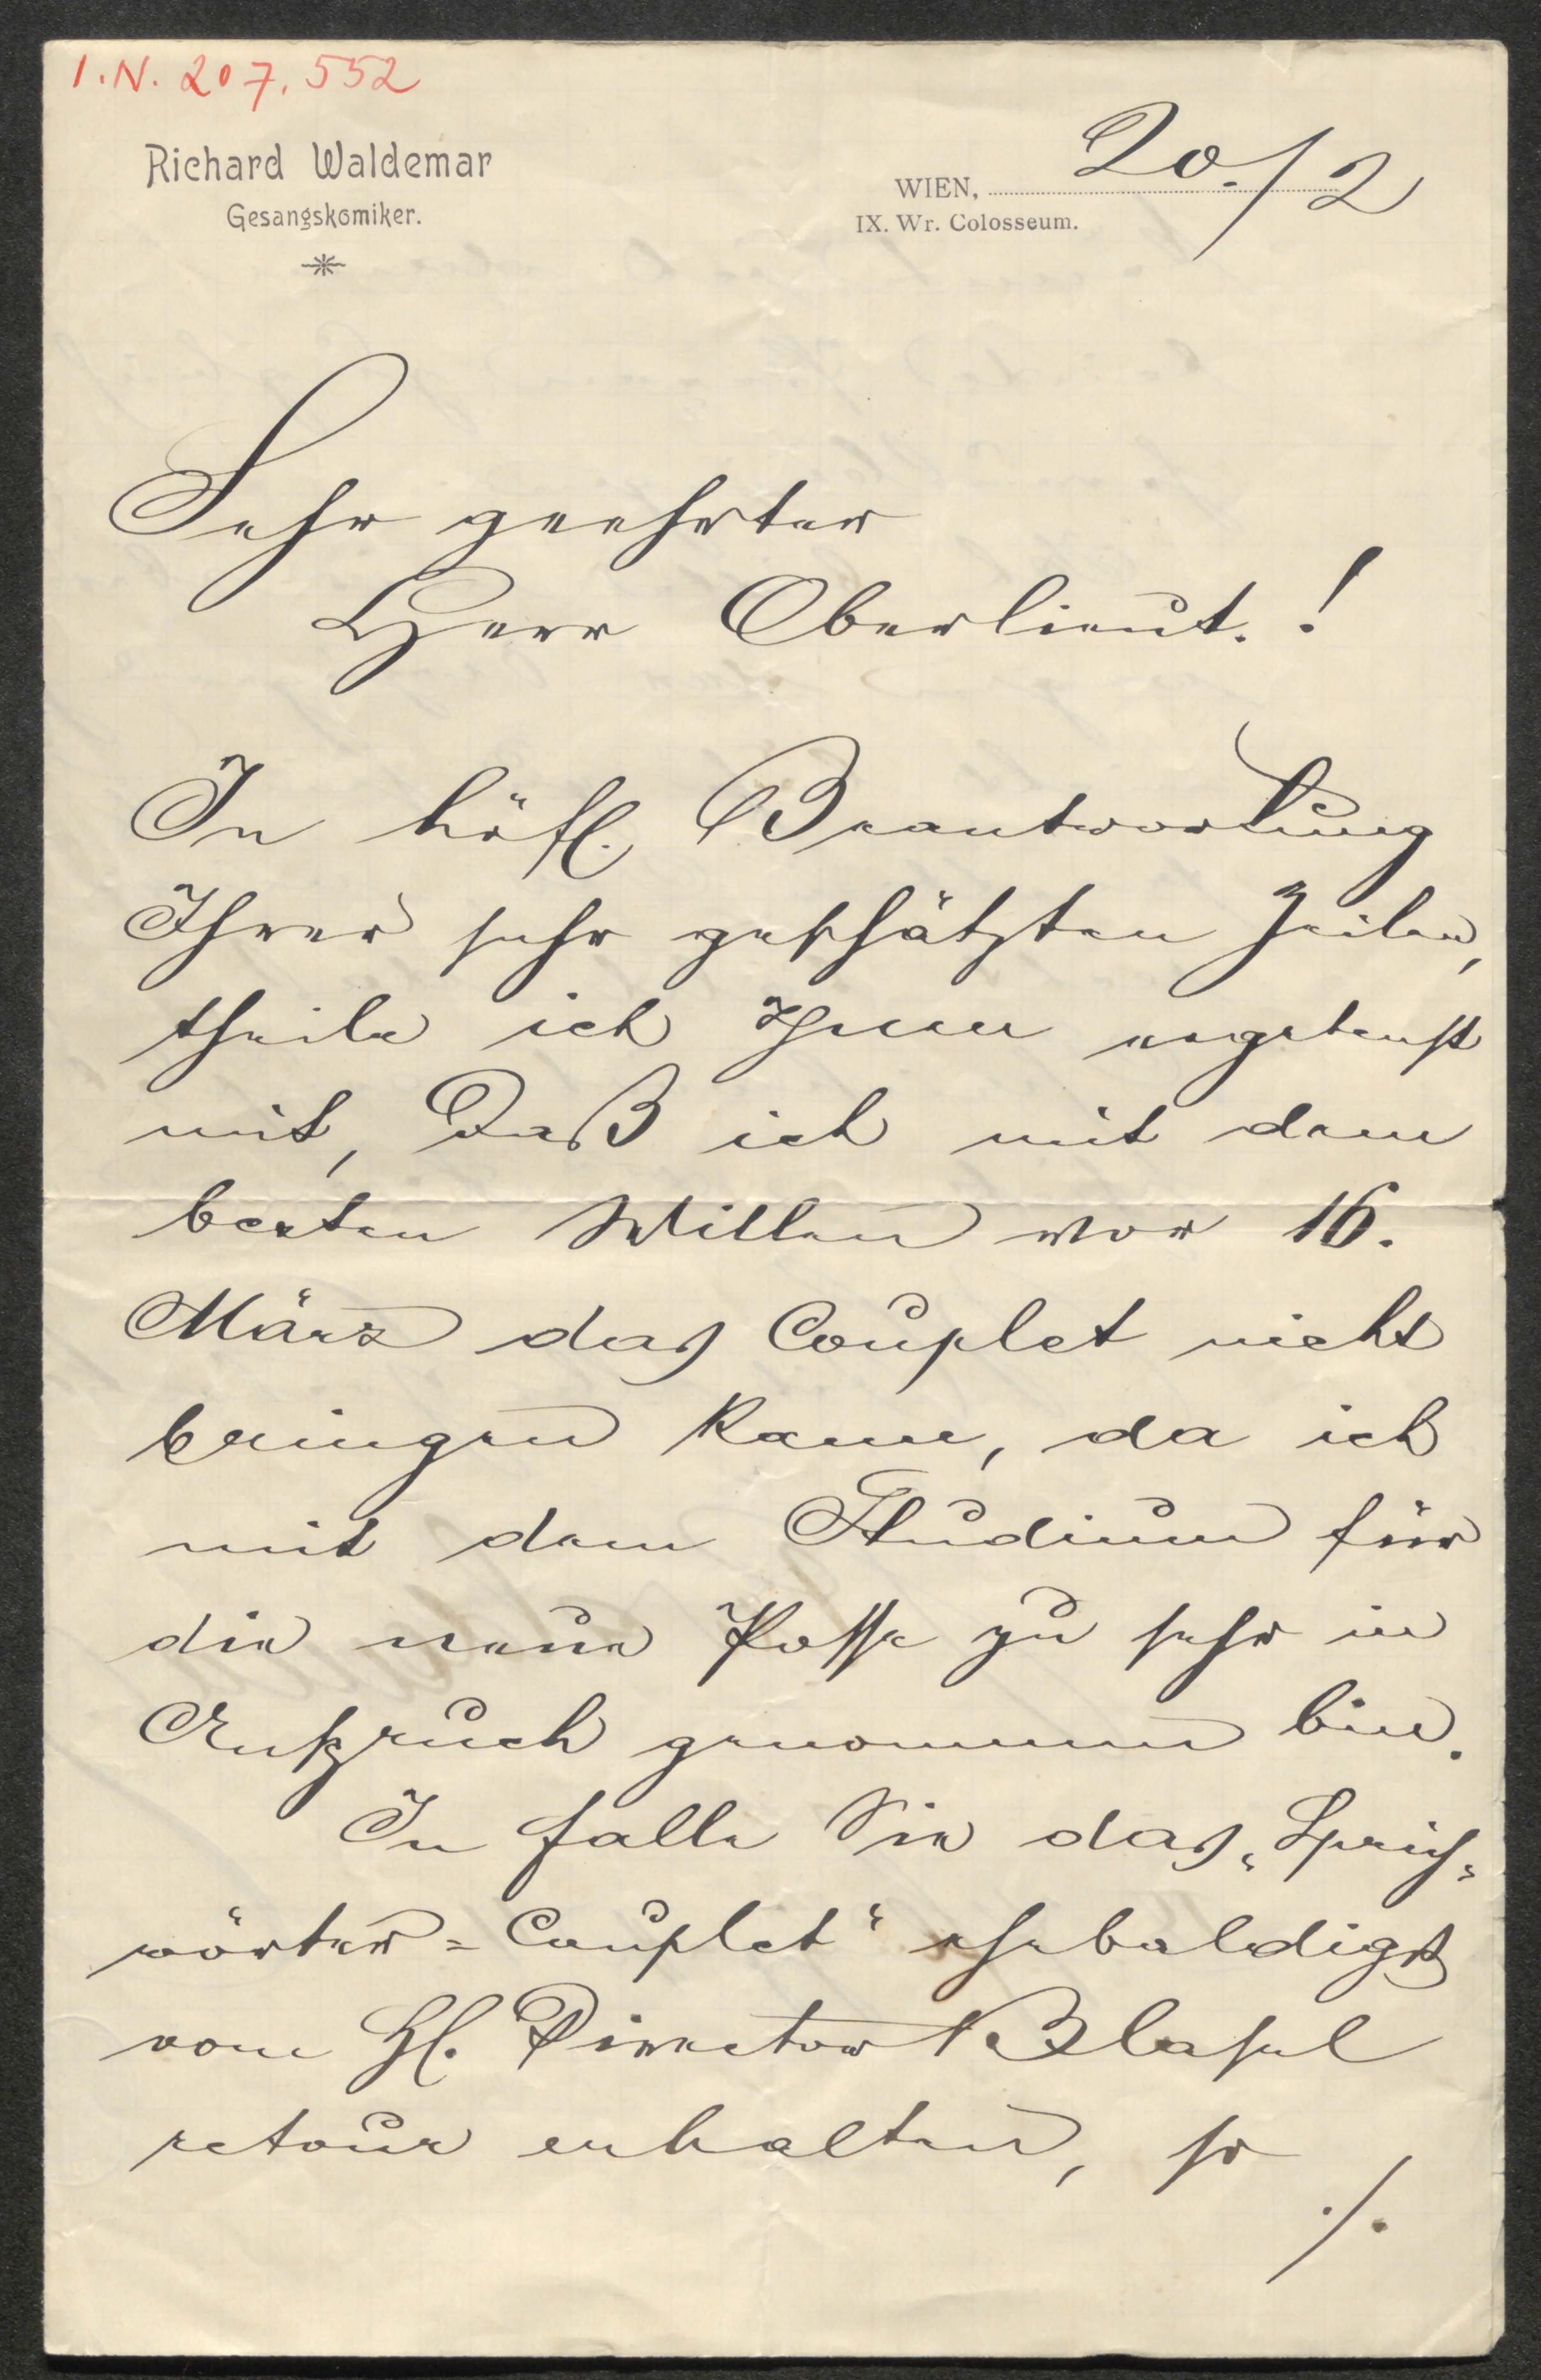 I.N. 207.552
Richard Waldemar
Gesangskomiker.
WIEN, 20./2
IX. Wr. Colosseum.
Sehr geehrter
Herr Oberlieut.!
In höfl. Beantwortung
Ihrer sehr geschätzten Zeilen,
theile ich Ihnen ergebenst
mit, Daß ich mit dem
besten Willen vor 16.
März das Couplet nicht
bringen kann, da ich
mit dem Studium für
die neue Posse zu sehr in
Anspruch genommen bin.
In falle Sie das „Sprich-
wörter-Couplet“ ehebaldigst
vom H. Director Blasel
retour erhalten, so
./.